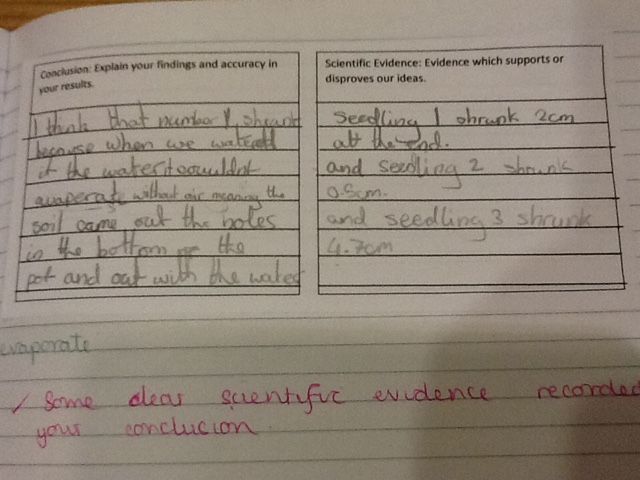 Conclusion: Explain your findings and accuracy in
your results.
I think that number 1, shrank
because when we watered
it the water it couuldnt
auaperate without air meaning the
soil came out the holes
in the bottom of the
pot and out with the water
Scientific Evidence: Evidence which supports or
disproves our ideas.
Seedling 1 shrunk 2cm
at the end.
and seedling 2 shrunk
0.5cm.
and seedling 3 shrunk
4.7cm
evaporate
✓ Some clear scientific evidence recorded
your conclucion.